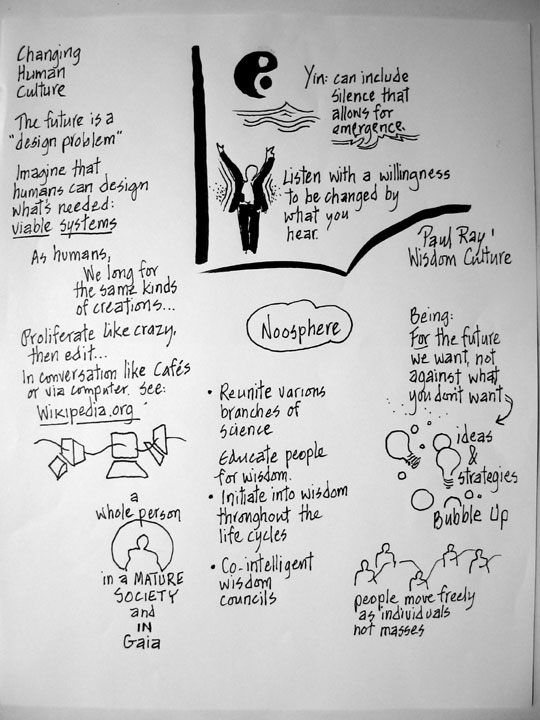 Changing
Human
Culture
The future is a
"design problem"
Imagine that
humans can design
what's needed:
viable systems
As humans,
We long for
the same kinds
of creations...
Proliferate like crazy,
then edit...
In conversation like Cafés
or via computer. see:
Wikipedia.org
a
whole person
in a MATURE
SOCIETY
and
IN
Gaia
Yin: can include
silence that
allows for
emergence.
Listen with a willingness
to be changed by
what you
hear.
Paul Ray
Wisdom Culture
Noosphere
• Reunite various
branches of
science
Educate people
for wisdom.
• Initiate into wisdom
throughout the
life cycles
• Co-intelligent
wisdom
councils
Being:
For the future
we want, not
against what
you don't want
ideas
&
strategies
Bubble Up
people move freely
as individuals
not masses